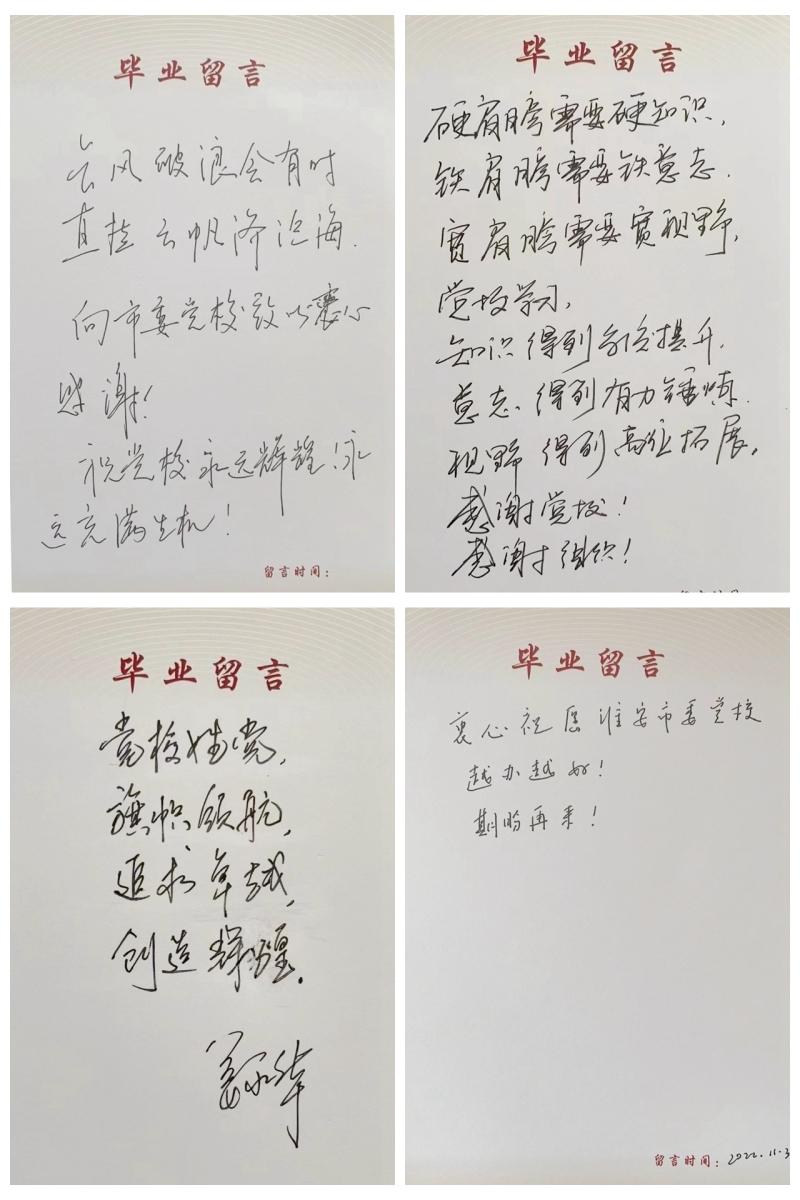 毕业留言
长风破浪会有时
直挂云帆济沧海.
向市委党校致以衷心
感谢!
祝党校永远辉煌!永
远充满生机!
留言时间:
毕业留言
硬肩膀需要硬知识,
铁肩膀需要铁意志.
宽肩膀需要宽视野,
党校学习,
知识得到系统提升,
意志得到有力锤炼.
视野得到高位拓展。
感谢党校!
感谢组织!
毕业留言
党校姓党,
旗帜领航,
追求卓越,
创造辉煌.
毕业留言
衷心祝愿淮安市委党校
越办越好!
期盼再来!
留言时间: 2022.11.3